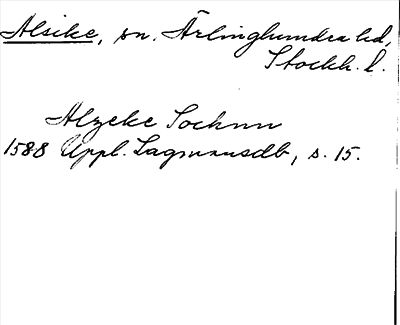 Alsike, sn. Ärlinghundra hd,
Stockh. l.
Alzeke Socknn
1588 Uppl. Lagmansdb, s. 15.